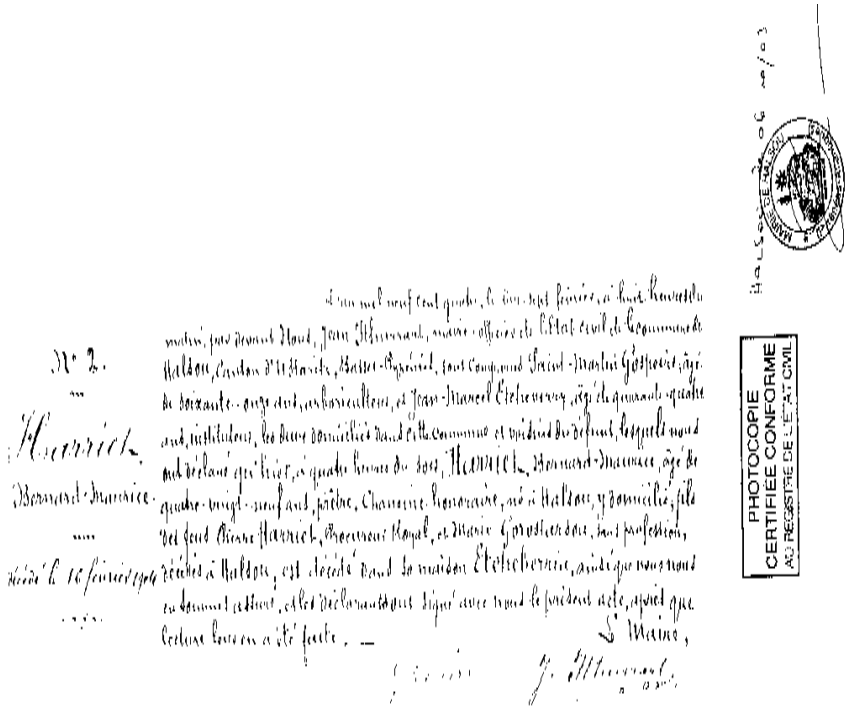 N° 2.
Harriet,
Bernard-Maurice
décédé le 16 février 1904
L'an mil neuf cent quatre, le dix-sept février, à huit heures du
matin, par devant Nous, Jean, maire officier de l'État civil de la commune de
Halsou, Canton d'Ustaritz, Basses-Pyrénées, sont comparus Saint-Martin, âgé
de soixante-onze ans, arboriculteur, et Jean-Marcel Etcheverry, âgé de quarante-quatre
ans, instituteur, les deux domiciliés dans cette commune et voisins du défunt, lesquels nous
ont déclaré qu'hier, à quatre heures du soir, Harriet, Bernard-Maurice, âgé de
quatre-vingt-neuf ans, prêtre, Chanoine honoraire, né à Halsou, y domicilié, fils
des feus Pierre Harriet, Procureur Royal, et Marie, sans profession,
décédés à Halsou, est décédé dans sa maison Etcheberria, ainsi que nous nous
en sommes assuré, et les déclarants ont signé avec nous le présent acte, après que
lecture leur en a été faite. —
Le Maire,
MAIRIE DE HALSOU
PHOTOCOPIE
CERTIFIÉE CONFORME
AU REGISTRE DE L'ÉTAT CIVIL